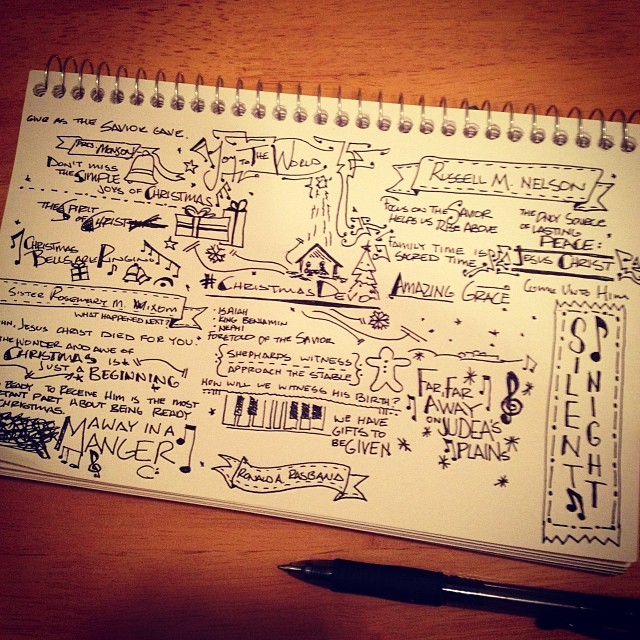 GIVE AS THE SAVIOR GAVE.
PRES. MONSON
DON'T MISS
THE SIMPLE
JOYS OF CHRISTMAS
THE SPIRIT
OF CHRIST
CHRISTMAS
BELLS ARE RINGING
JOY TO THE WORLD
#CHRISTMASDEVO
RUSSELL M. NELSON
FOCUS ON THE SAVIOR
HELPS US RISE ABOVE
THE ONLY SOURCE
OF LASTING
PEACE:
JESUS CHRIST
FAMILY TIME IS
SACRED TIME
AMAZING GRACE
COME UNTO HIM
SISTER ROSEMARY M. WIXOM
WHAT HAPPENED NEXT?
JESUS CHRIST DIED FOR YOU.
THE WONDER AND AWE OF
CHRISTMAS IS
JUST A BEGINNING
READY TO RECEIVE HIM IS THE MOST
PART ABOUT BEING READY
CHRISTMAS.
AWAY IN A
MANGER
• ISAIAH
• KING BENJAMIN
• NEPHI
FORETOLD OF THE SAVIOR
SHEPHERDS WITNESS
APPROACH THE STABLE
HOW WILL WE WITNESS HIS BIRTH?
WE HAVE
GIFTS TO
BE GIVEN
RONALD A. RASBAND
FAR, FAR
AWAY
ON JUDEA'S
PLAINS
SILENT
NIGHT